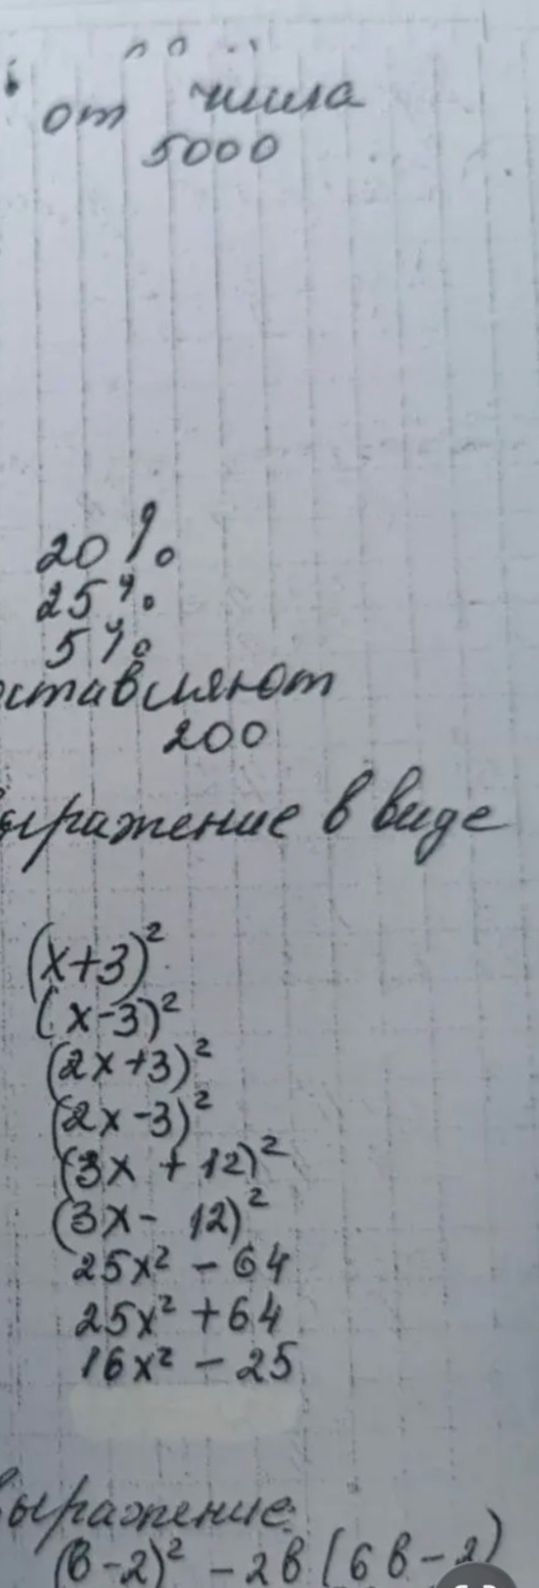 от числа
5000
20%
25%
5%
оставляют
200
выражение в виде
(x+3)²
(x-3)²
(2x+3)²
(2x-3)²
(3x + 12)²
(3x - 12)²
25x² - 64
25x² + 64
16x² - 25
выражение:
(в-2)² - 2в(6в-2)